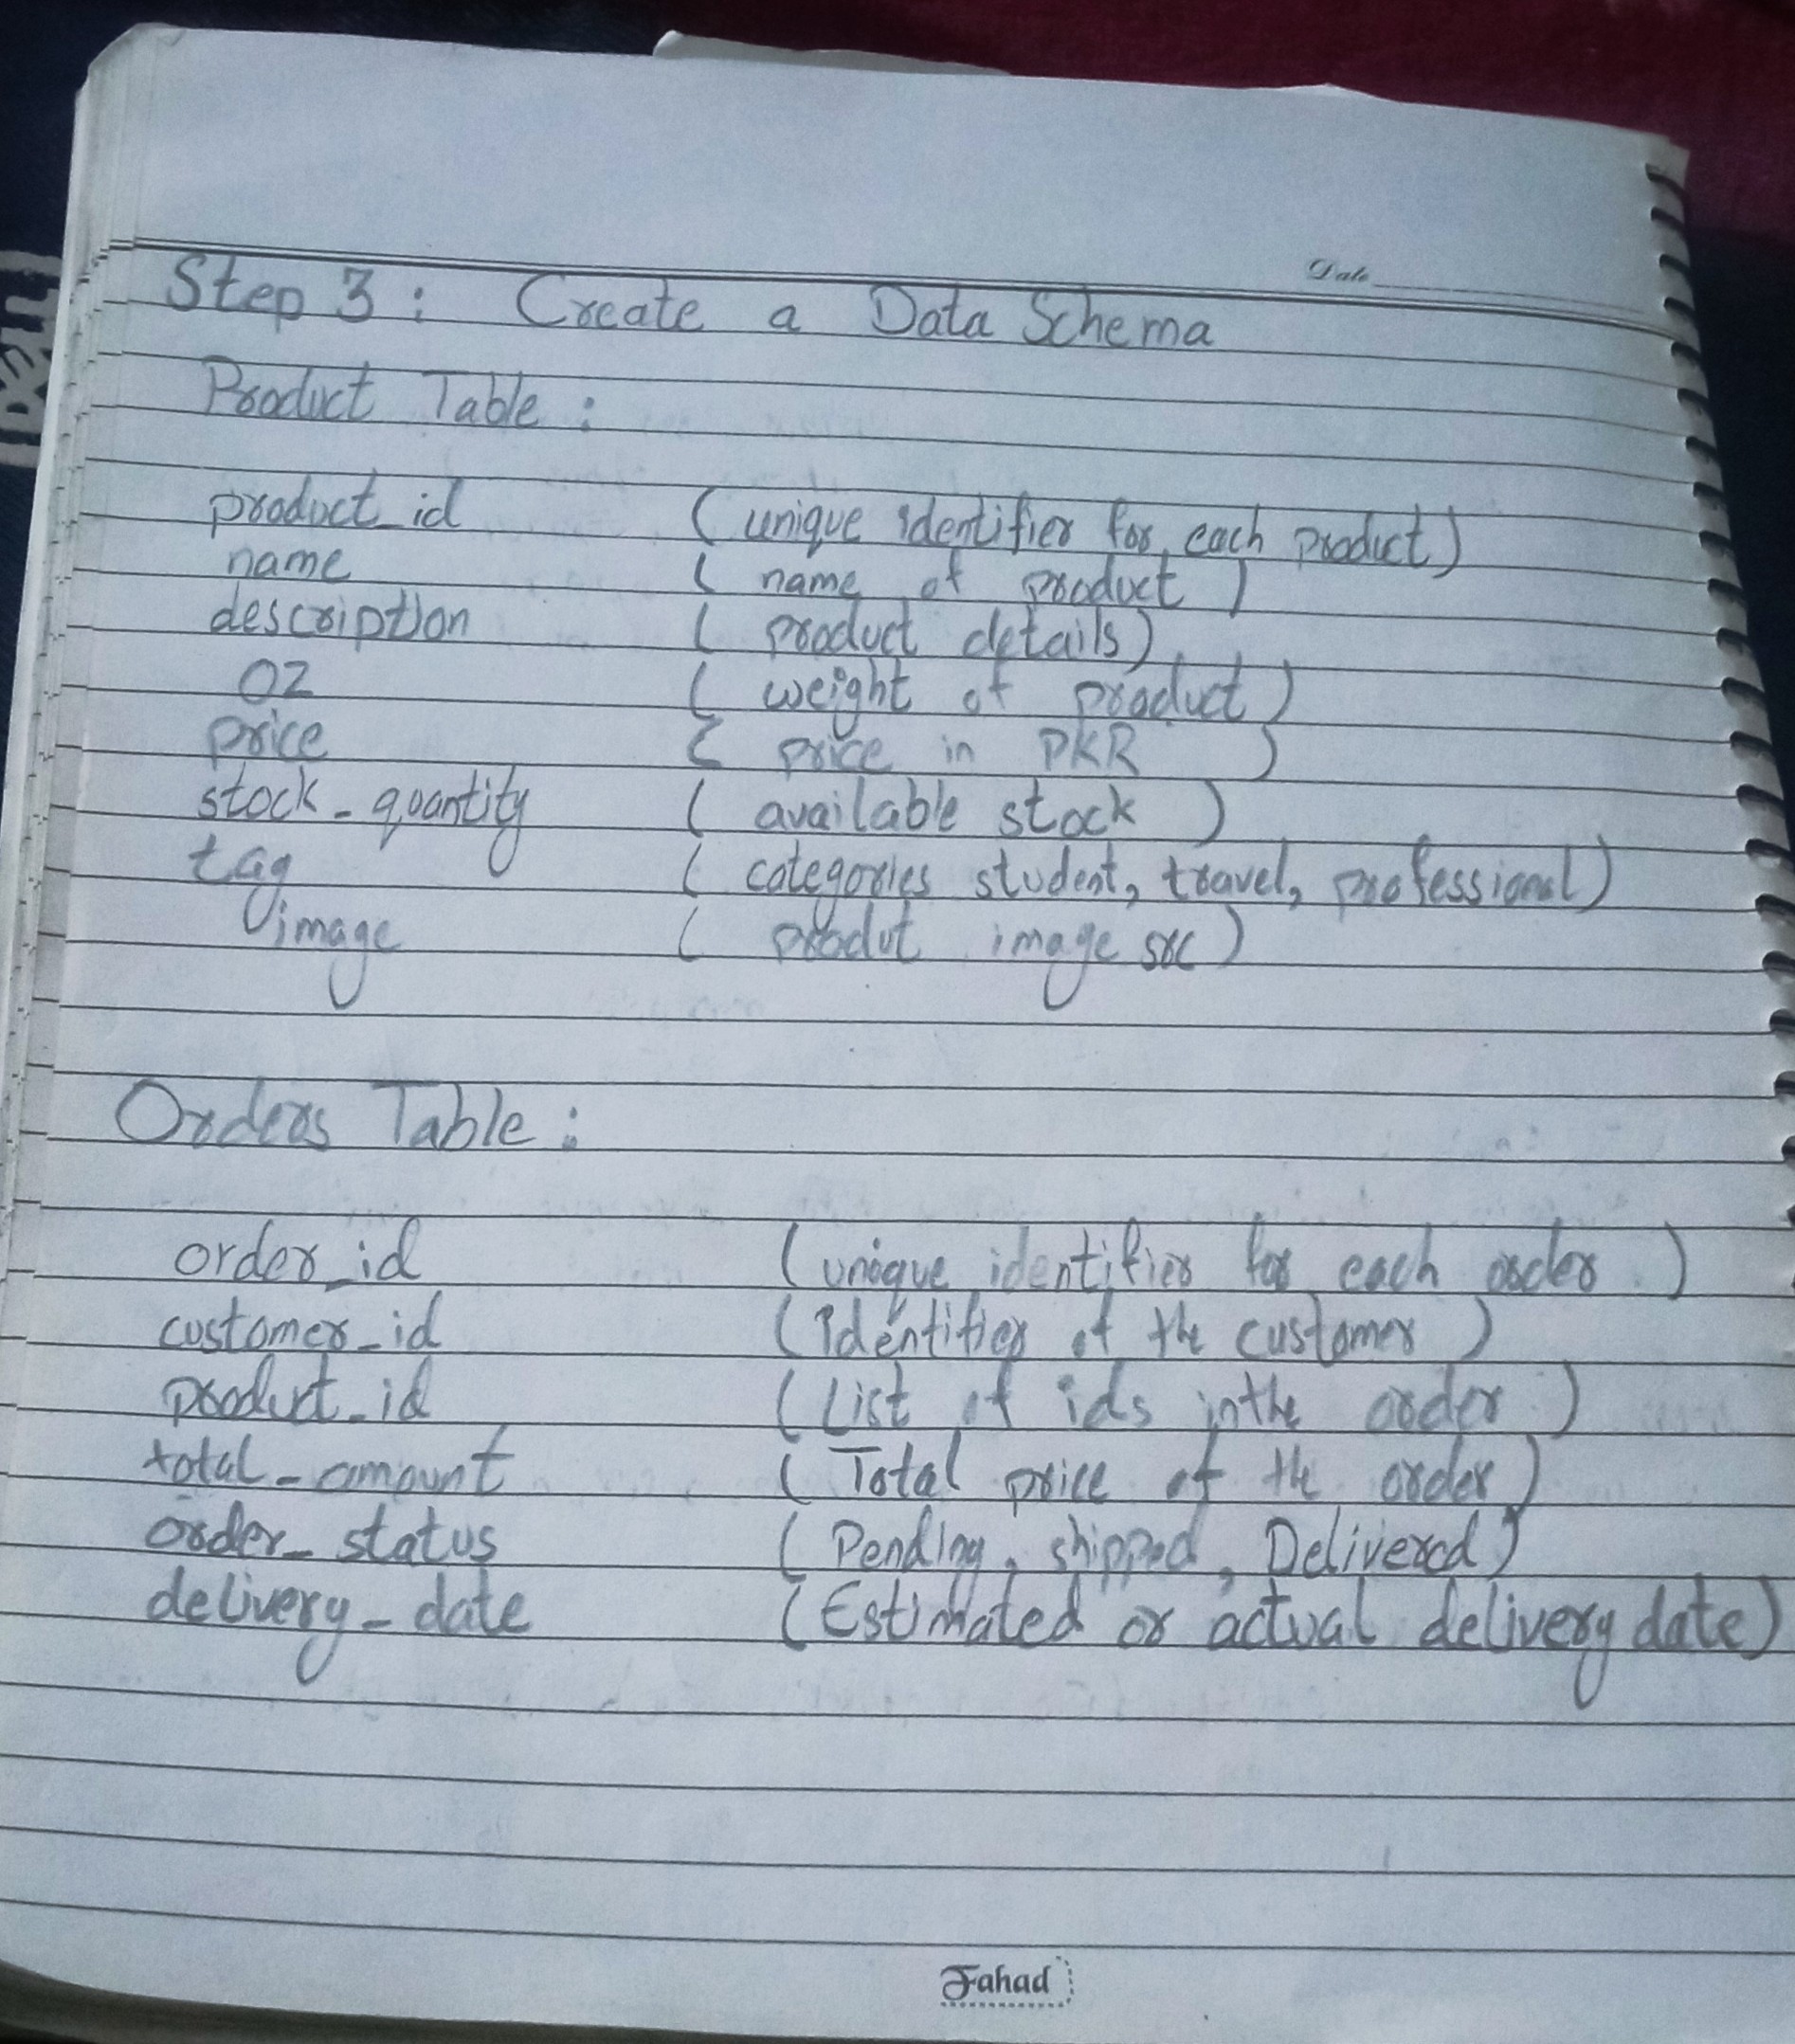 Date
Step 3 : Create a Data Schema
Product Table :
product_id ( unique identifier for each product)
name ( name of product )
description ( product details)
oz ( weight of product)
price ( price in PKR )
stock_quantity ( available stock )
tag ( categories student, travel, professional)
image ( produt image src)
Orders Table :
order_id ( unique identifier for each order )
customer_id ( Identifier of the customer )
product_id ( List of ids in the order )
total_amount ( Total price of the order)
order_status ( Pending, shipped, Delivered)
delivery_date ( Estimated or actual delivery date)
Fahad